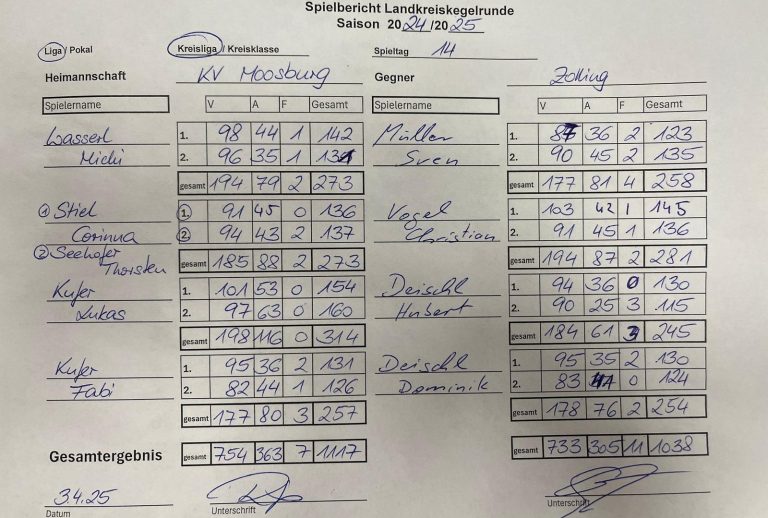 Spielbericht Landkreiskegelrunde
Saison 2024/2025
Liga / Pokal Kreisliga / Kreisklasse Spieltag 14
Heimannschaft KV Moosburg Gegner Zolling
Spielername V A F Gesamt Spielername V A F Gesamt
Wasserl 1. 98 44 1 142 Müller 1. 87 36 2 123
Michi 2. 96 35 1 131 Sven 2. 90 45 2 135
gesamt 194 79 2 273 gesamt 177 81 4 258
① Stiel 1. 91 45 0 136 Vogel 1. 103 42 1 145
Corinna 2. 94 43 2 137 Christian 2. 91 45 1 136
② Seehofer gesamt 185 88 2 273 gesamt 194 87 2 281
Thorsten
Kufer 1. 101 53 0 154 Deischl 1. 94 36 0 130
Lukas 2. 97 63 0 160 Hubert 2. 90 25 3 115
gesamt 198 116 0 314 gesamt 184 61 3 245
Kufer 1. 95 36 2 131 Deischl 1. 95 35 2 130
Fabi 2. 82 44 1 126 Dominik 2. 83 41 0 124
gesamt 177 80 3 257 gesamt 178 76 2 254
Gesamtergebnis gesamt 754 363 7 1117 gesamt 733 305 11 1038
3.4.25
Datum Unterschrift Unterschrift